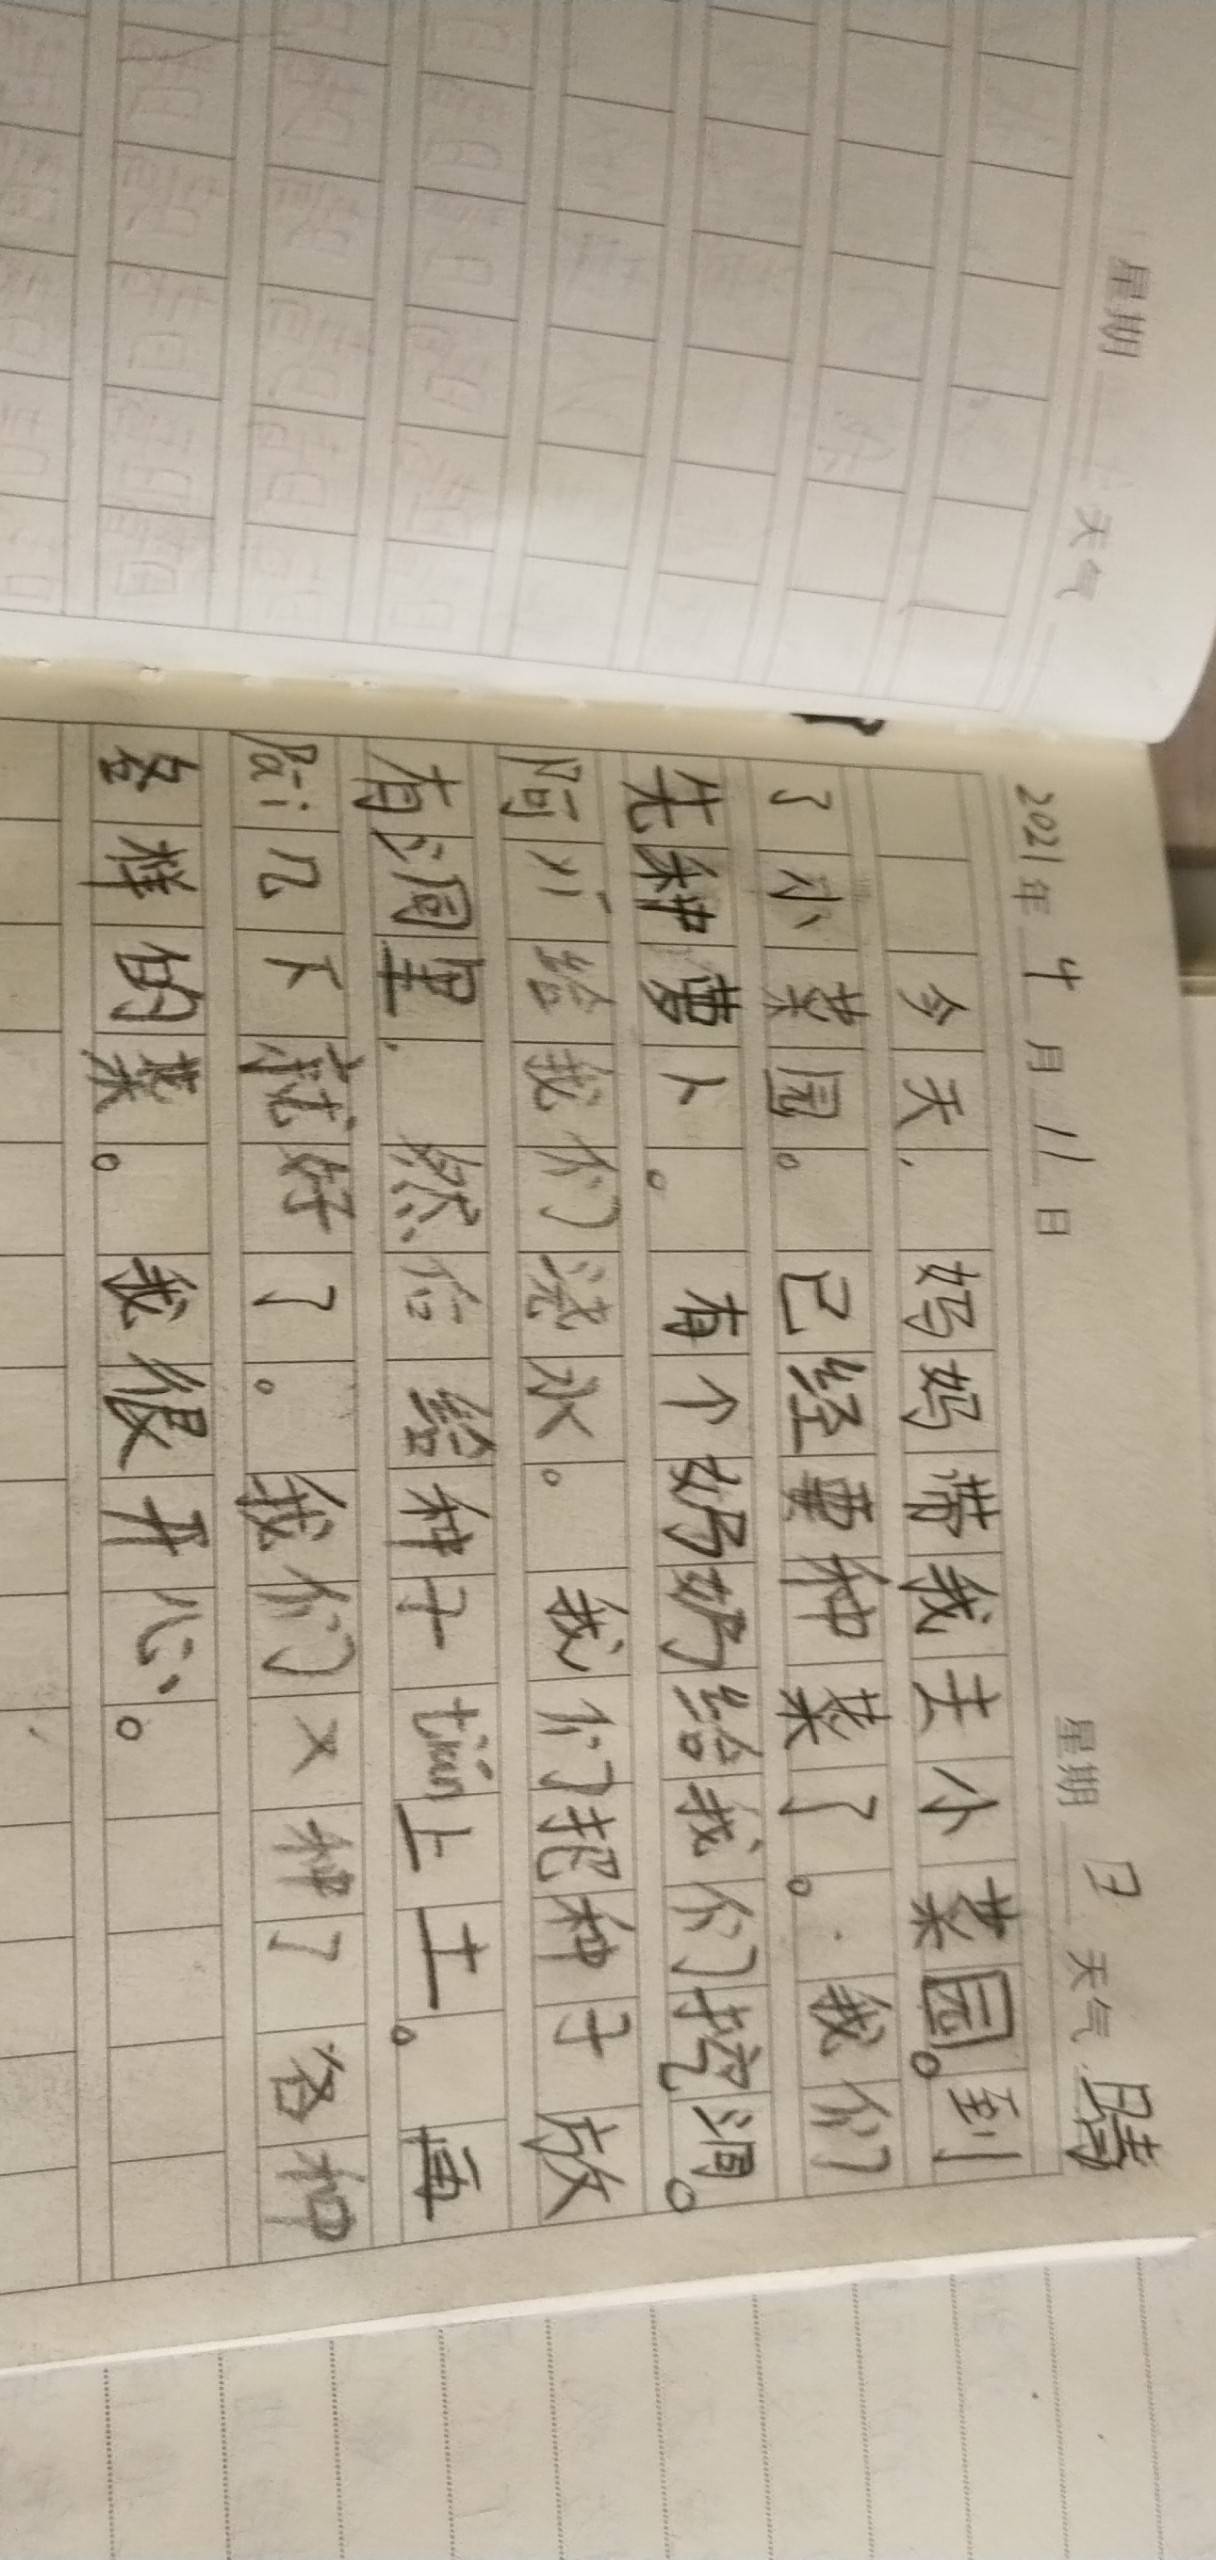 星期 天气
2021年 十 月 11 日 星期 天气 晴
今天，妈妈带我去小菜园。到
了小菜园。已经要种菜了。我们
先种萝卜。有个奶奶给我们挖洞。
阿川给我们浇水。我们把种子放
有洞里，然后给种子tián上土。再
pāi几下就好了。我们又种了各种
各样的菜。我很开心。